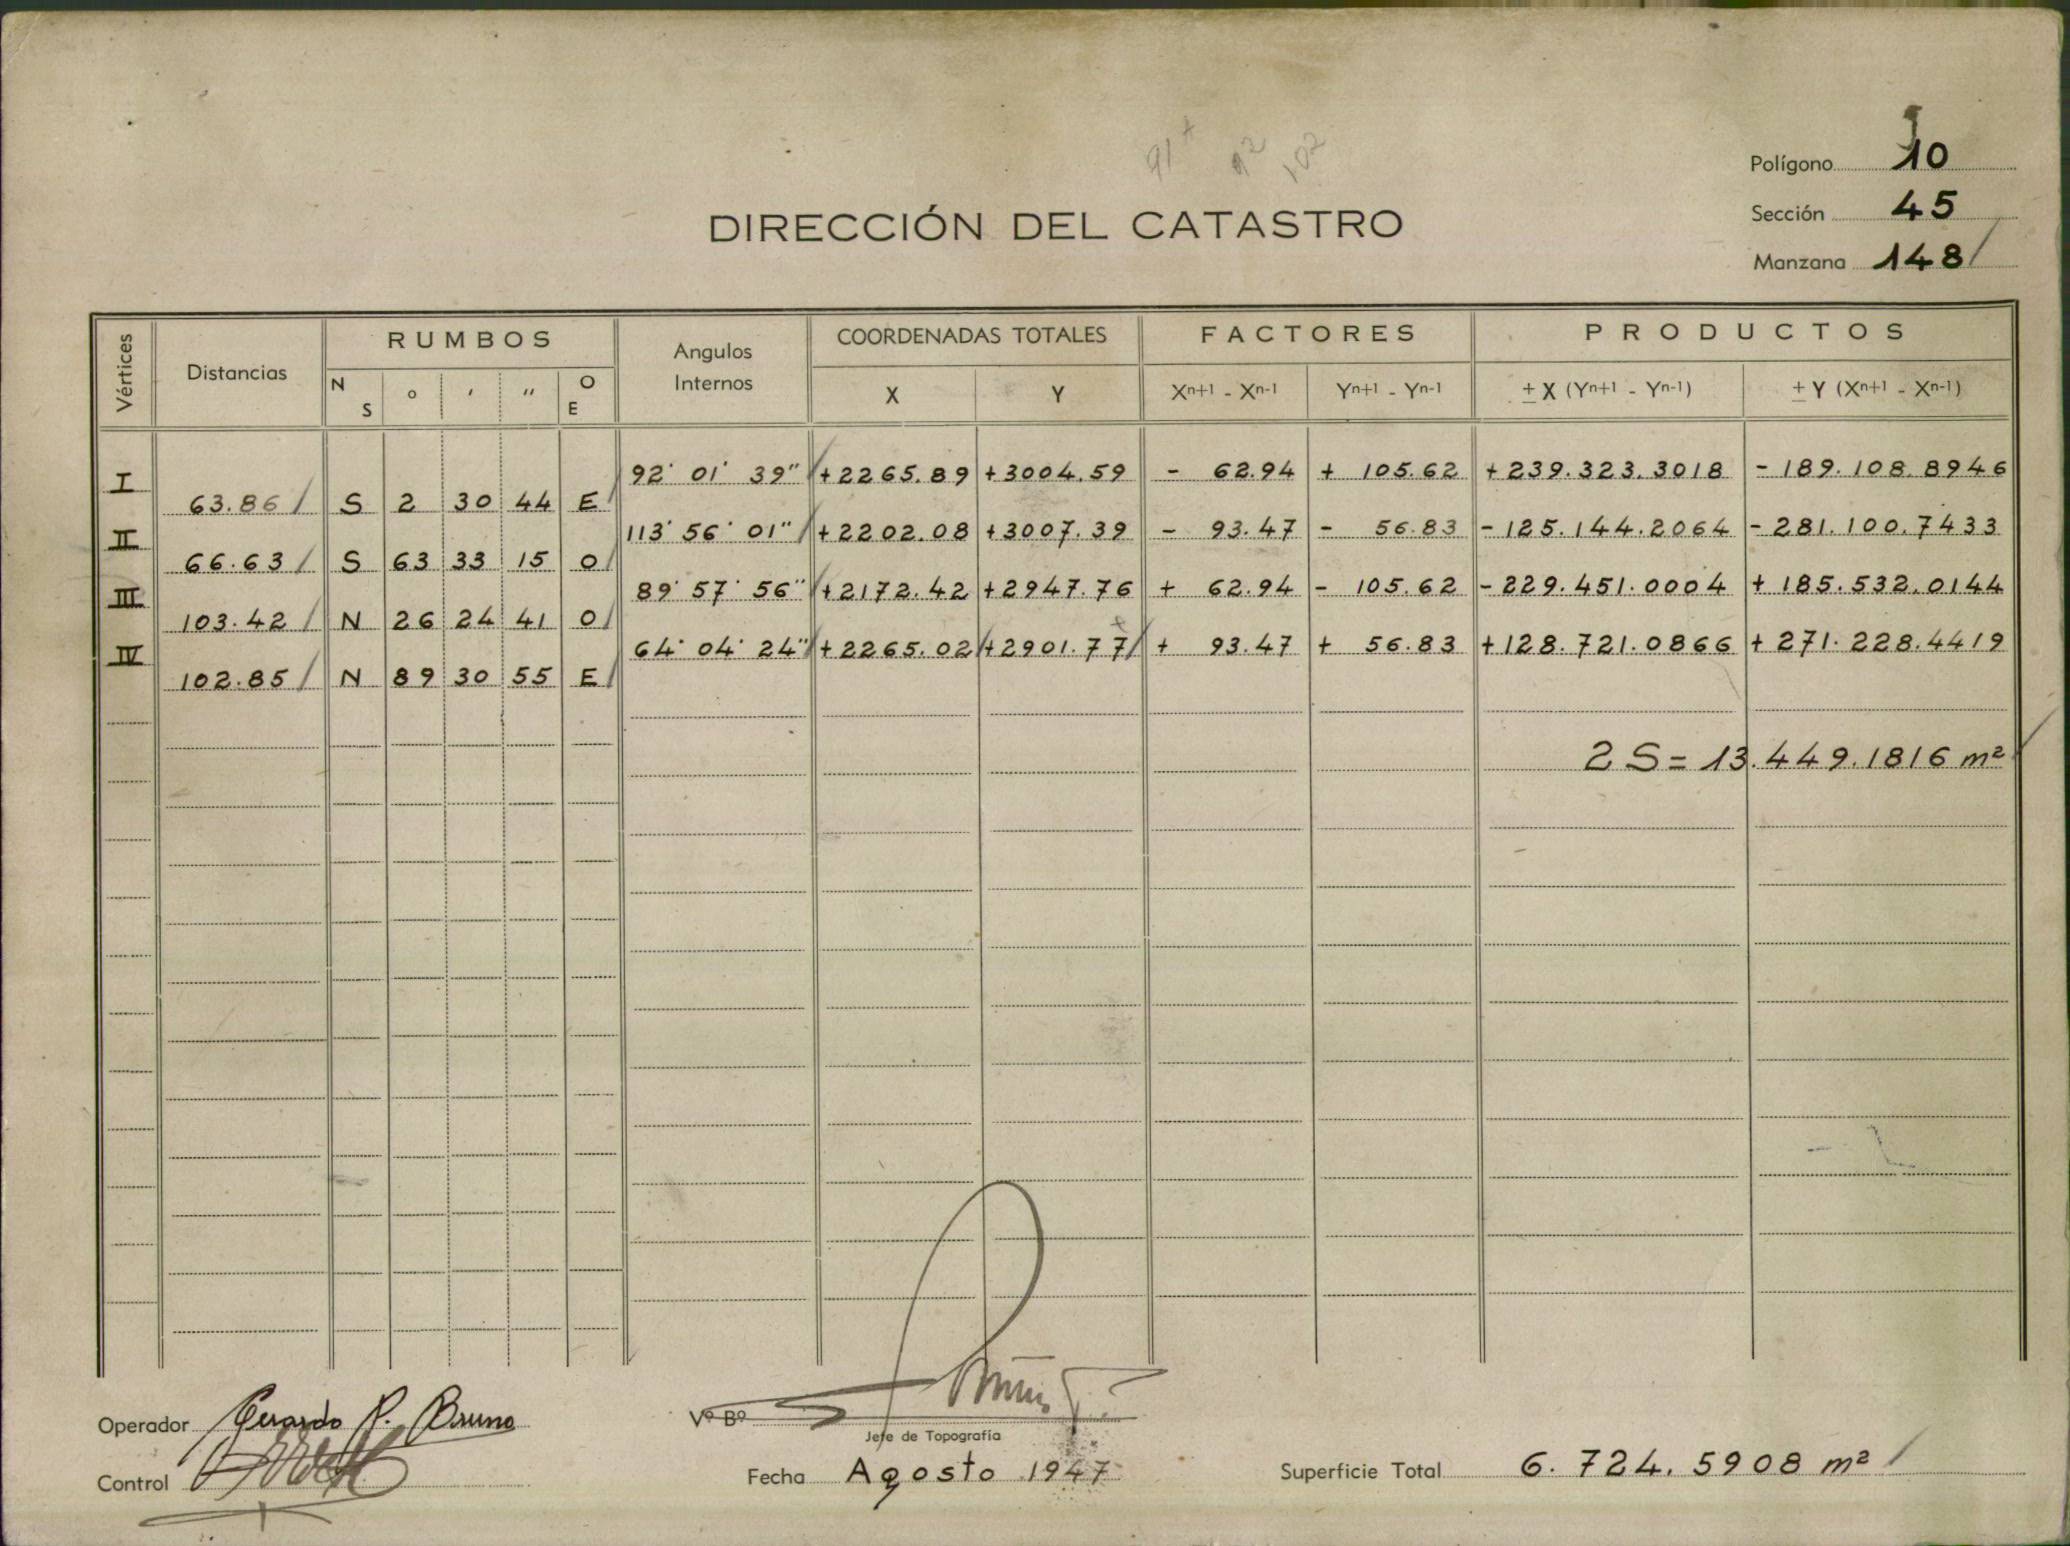 91
92
102
Polígono 10
Sección 45
Manzana 148
DIRECCIÓN DEL CATASTRO
Vértices Distancias RUMBOS Angulos Internos COORDENADAS TOTALES FACTORES PRODUCTOS
N S ° ′ ″ O E X Y Xⁿ⁺¹ - Xⁿ⁻¹ Yⁿ⁺¹ - Yⁿ⁻¹ ± X (Yⁿ⁺¹ - Yⁿ⁻¹) ± Y (Xⁿ⁺¹ - Xⁿ⁻¹)
I 92° 01' 39" +2265.89 +3004.59 - 62.94 + 105.62 +239.323.3018 -189.108.8946
63.86 S 2 30 44 E
II 113° 56' 01" +2202.08 +3007.39 - 93.47 - 56.83 -125.144.2064 -281.100.7433
66.63 S 63 33 15 O
III 89° 57' 56" +2172.42 +2947.76 + 62.94 - 105.62 -229.451.0004 +185.532.0144
103.42 N 26 24 41 O
IV 64° 04' 24" +2265.02 +2901.77 + 93.47 + 56.83 +128.721.0866 +271.228.4419
102.85 N 89 30 55 E
2 S = 13.449.1816 m²
Operador Gerardo R. Bruno
Vº Bº
Jefe de Topografía
Control
Fecha Agosto 1947
Superficie Total 6.724.5908 m²